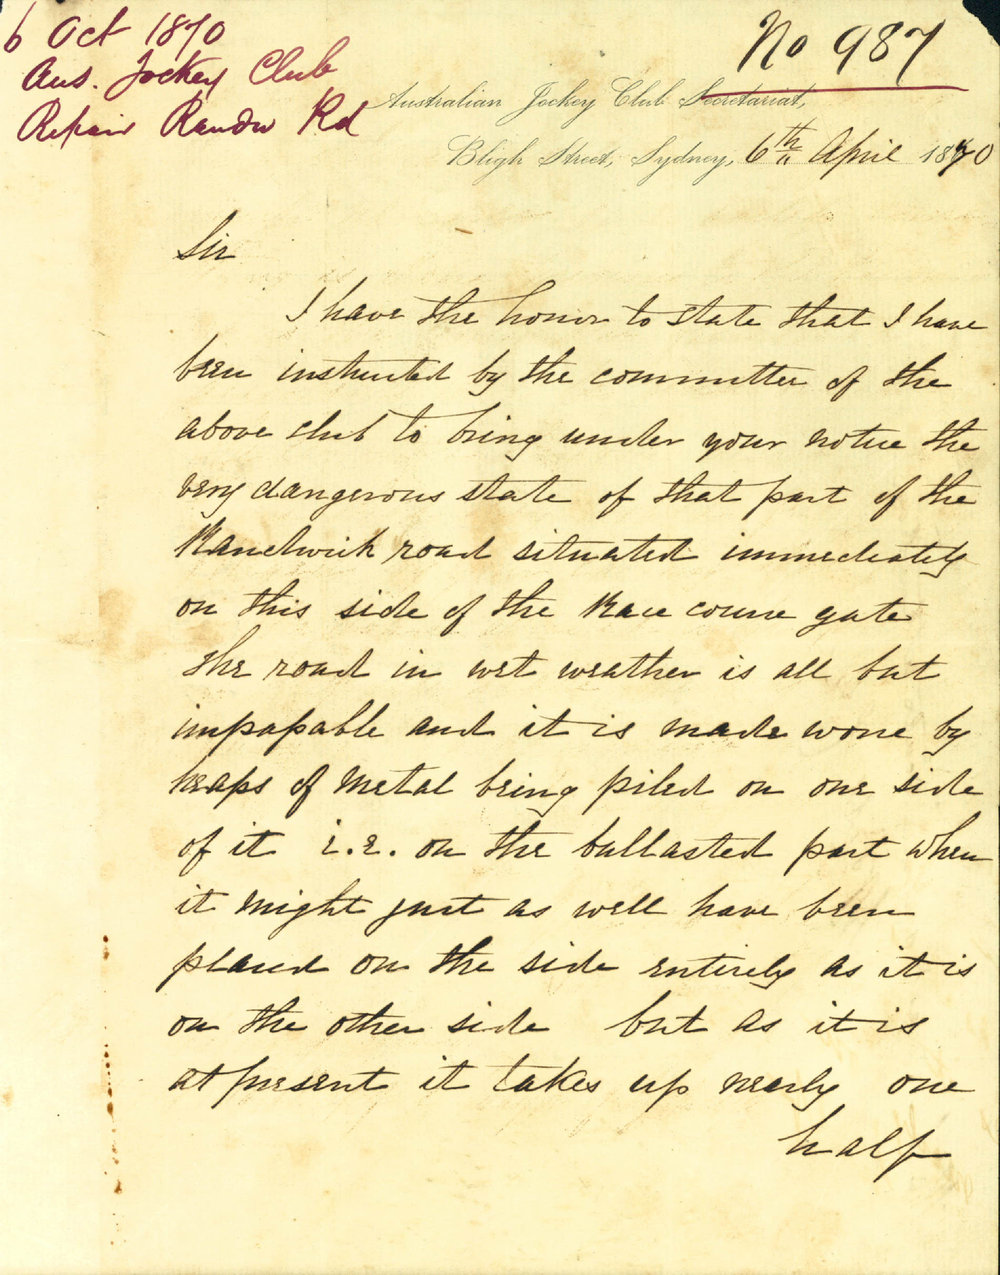 6 Oct 1870
Aus. Jockey Club
Repair Randw Rd
No 987
Australian Jockey Club Secretariat,
Bligh Street, Sydney, 6th April 1870
Sir
I have the honor to state that I have
been instructed by the committee of the
above club to bring under your notice the
very dangerous state of that part of the
Randwick road situated immediately
on this side of the Race course gate
The road in wet weather is all but
impapable and it is made worse by
heaps of metal being piled on one side
of it i.e. on the ballasted part when
it might just as well have been
placed on the side entirely as it is
on the other side but as it is
at present it takes up nearly one
half